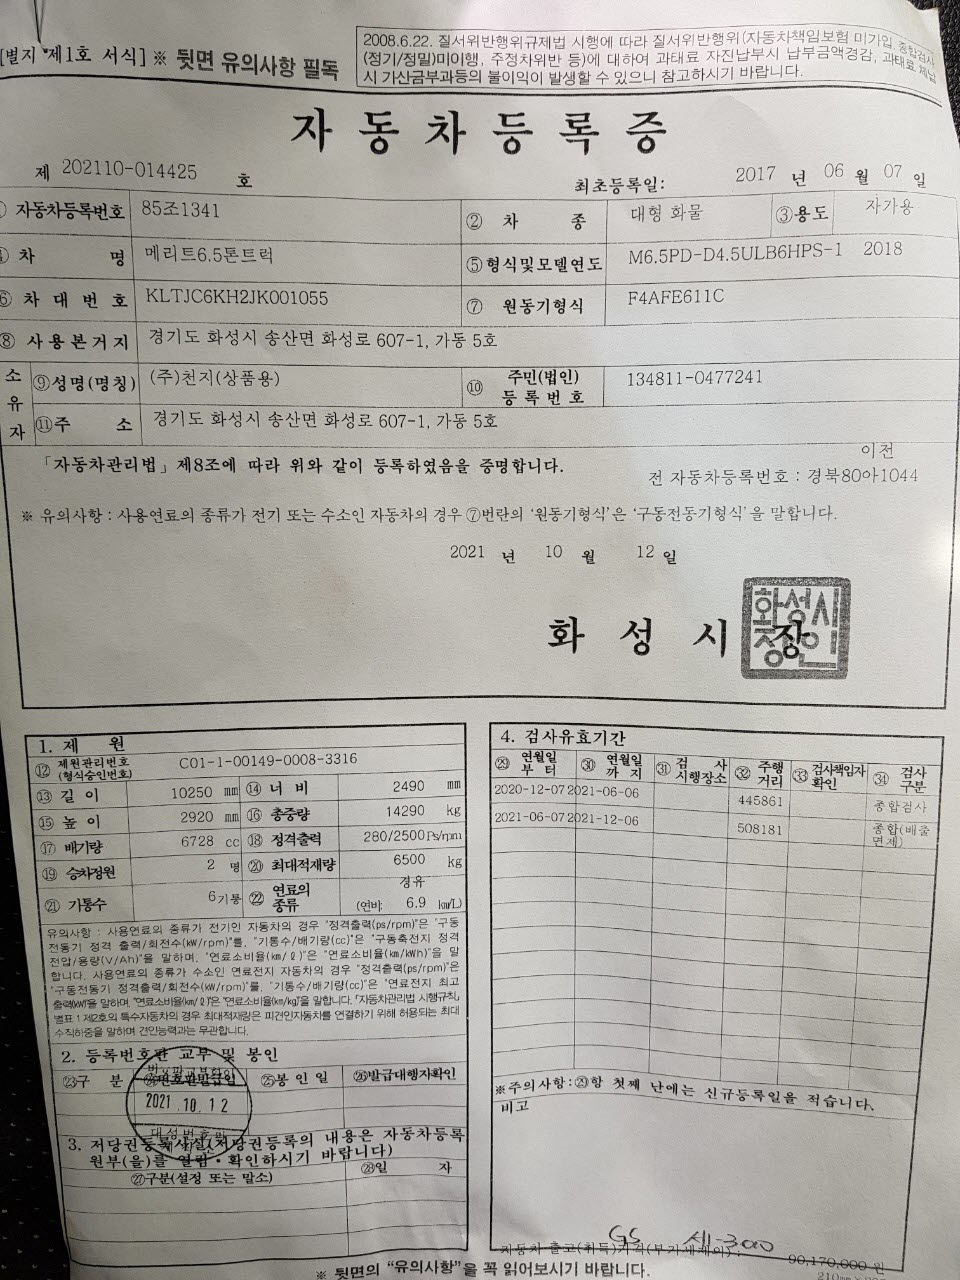 [별지 제1호 서식] ※ 뒷면 유의사항 필독
2008.6.22. 질서위반행위규제법 시행에 따라 질서위반행위(자동차책임보험 미가입, 종합검사
(정기/정밀)미이행, 주정차위반 등)에 대하여 과태료 자진납부시 납부금액경감, 과태료 체납
시 가산금부과등의 불이익이 발생할 수 있으니 참고하시기 바랍니다.
자동차등록증
제 202110-014425 호
최초등록일: 2017 년 06 월 07 일
① 자동차등록번호 85조1341 ② 차 종 대형 화물 ③용도 자가용
④ 차 명 메리트6.5톤트럭 ⑤형식및모델연도 M6.5PD-D4.5ULB6HPS-1 2018
⑥ 차대번호 KLTJC6KH2JK001055 ⑦ 원동기형식 F4AFE611C
⑧ 사용본거지 경기도 화성시 송산면 화성로 607-1, 가동 5호
소유자 ⑨성명(명칭) (주)천지(상품용) ⑩ 주민(법인)등록번호 134811-0477241
⑪주 소 경기도 화성시 송산면 화성로 607-1, 가동 5호
「자동차관리법」제8조에 따라 위와 같이 등록하였음을 증명합니다.
이전
전 자동차등록번호 : 경북80아1044
※ 유의사항 : 사용연료의 종류가 전기 또는 수소인 자동차의 경우 ⑦번란의 '원동기형식'은 '구동전동기형식'을 말합니다.
2021 년 10 월 12 일
화성시장
화성시
장인
1. 제 원
⑫ 제원관리번호(형식승인번호) C01-1-00149-0008-3316
⑬ 길이 10250 mm ⑭ 너비 2490 mm
⑮ 높이 2920 mm ⑯ 총중량 14290 kg
⑰ 배기량 6728 cc ⑱ 정격출력 280/2500Ps/rpm
⑲ 승차정원 2 명 ⑳ 최대적재량 6500 kg
㉑ 기통수 6기통 ㉒ 연료의 종류 경유 (연비: 6.9 km/L)
유의사항 : 사용연료의 종류가 전기인 자동차의 경우 "정격출력(ps/rpm)"은 "구동
전동기 정격 출력/회전수(kW/rpm)"를, "기통수/배기량(cc)"은 "구동축전지 정격
전압/용량(V/Ah)"을 말하며, "연료소비율(km/ℓ)"은 "연료소비율(km/kWh)"을 말
합니다. 사용연료의 종류가 수소인 연료전지 자동차의 경우 "정격출력(ps/rpm)"은
"구동전동기 정격출력/회전수(kW/rpm)"를, "기통수/배기량(cc)"은 "연료전지 최고
출력(kW)"을 말하며, "연료소비율(km/ℓ)"은 "연료소비율(km/kg)"을 말합니다. 「자동차관리법 시행규칙」
별표 1 제2호의 특수자동차의 경우 최대적재량은 피견인자동차를 연결하기 위해 허용되는 최대
수직하중을 말하며 견인능력과는 무관합니다.
2. 등록번호판 교부 및 봉인
㉓구 분 ㉔번호판발급일 ㉕봉인일 ㉖발급대행자확인
2021.10.12
3. 저당권등록사실(저당권등록의 내용은 자동차등록
원부(을)를 열람·확인하시기 바랍니다)
㉗구분(설정 또는 말소) ㉘일 자
4. 검사유효기간
㉙ 연월일부터 ㉚ 연월일까지 ㉛ 검사시행장소 ㉜ 주행거리 ㉝ 검사책임자확인 ㉞ 검사구분
2020-12-07 2021-06-06 445861 종합검사
2021-06-07 2021-12-06 508181 종합(배출면제)
※주의사항:㉙항 첫째 난에는 신규등록일을 적습니다.
비고
GS 세-300
자동차 출고(취득)가격(부가세제외) : 90,170,000 원
※ 뒷면의 "유의사항"을 꼭 읽어보시기 바랍니다.